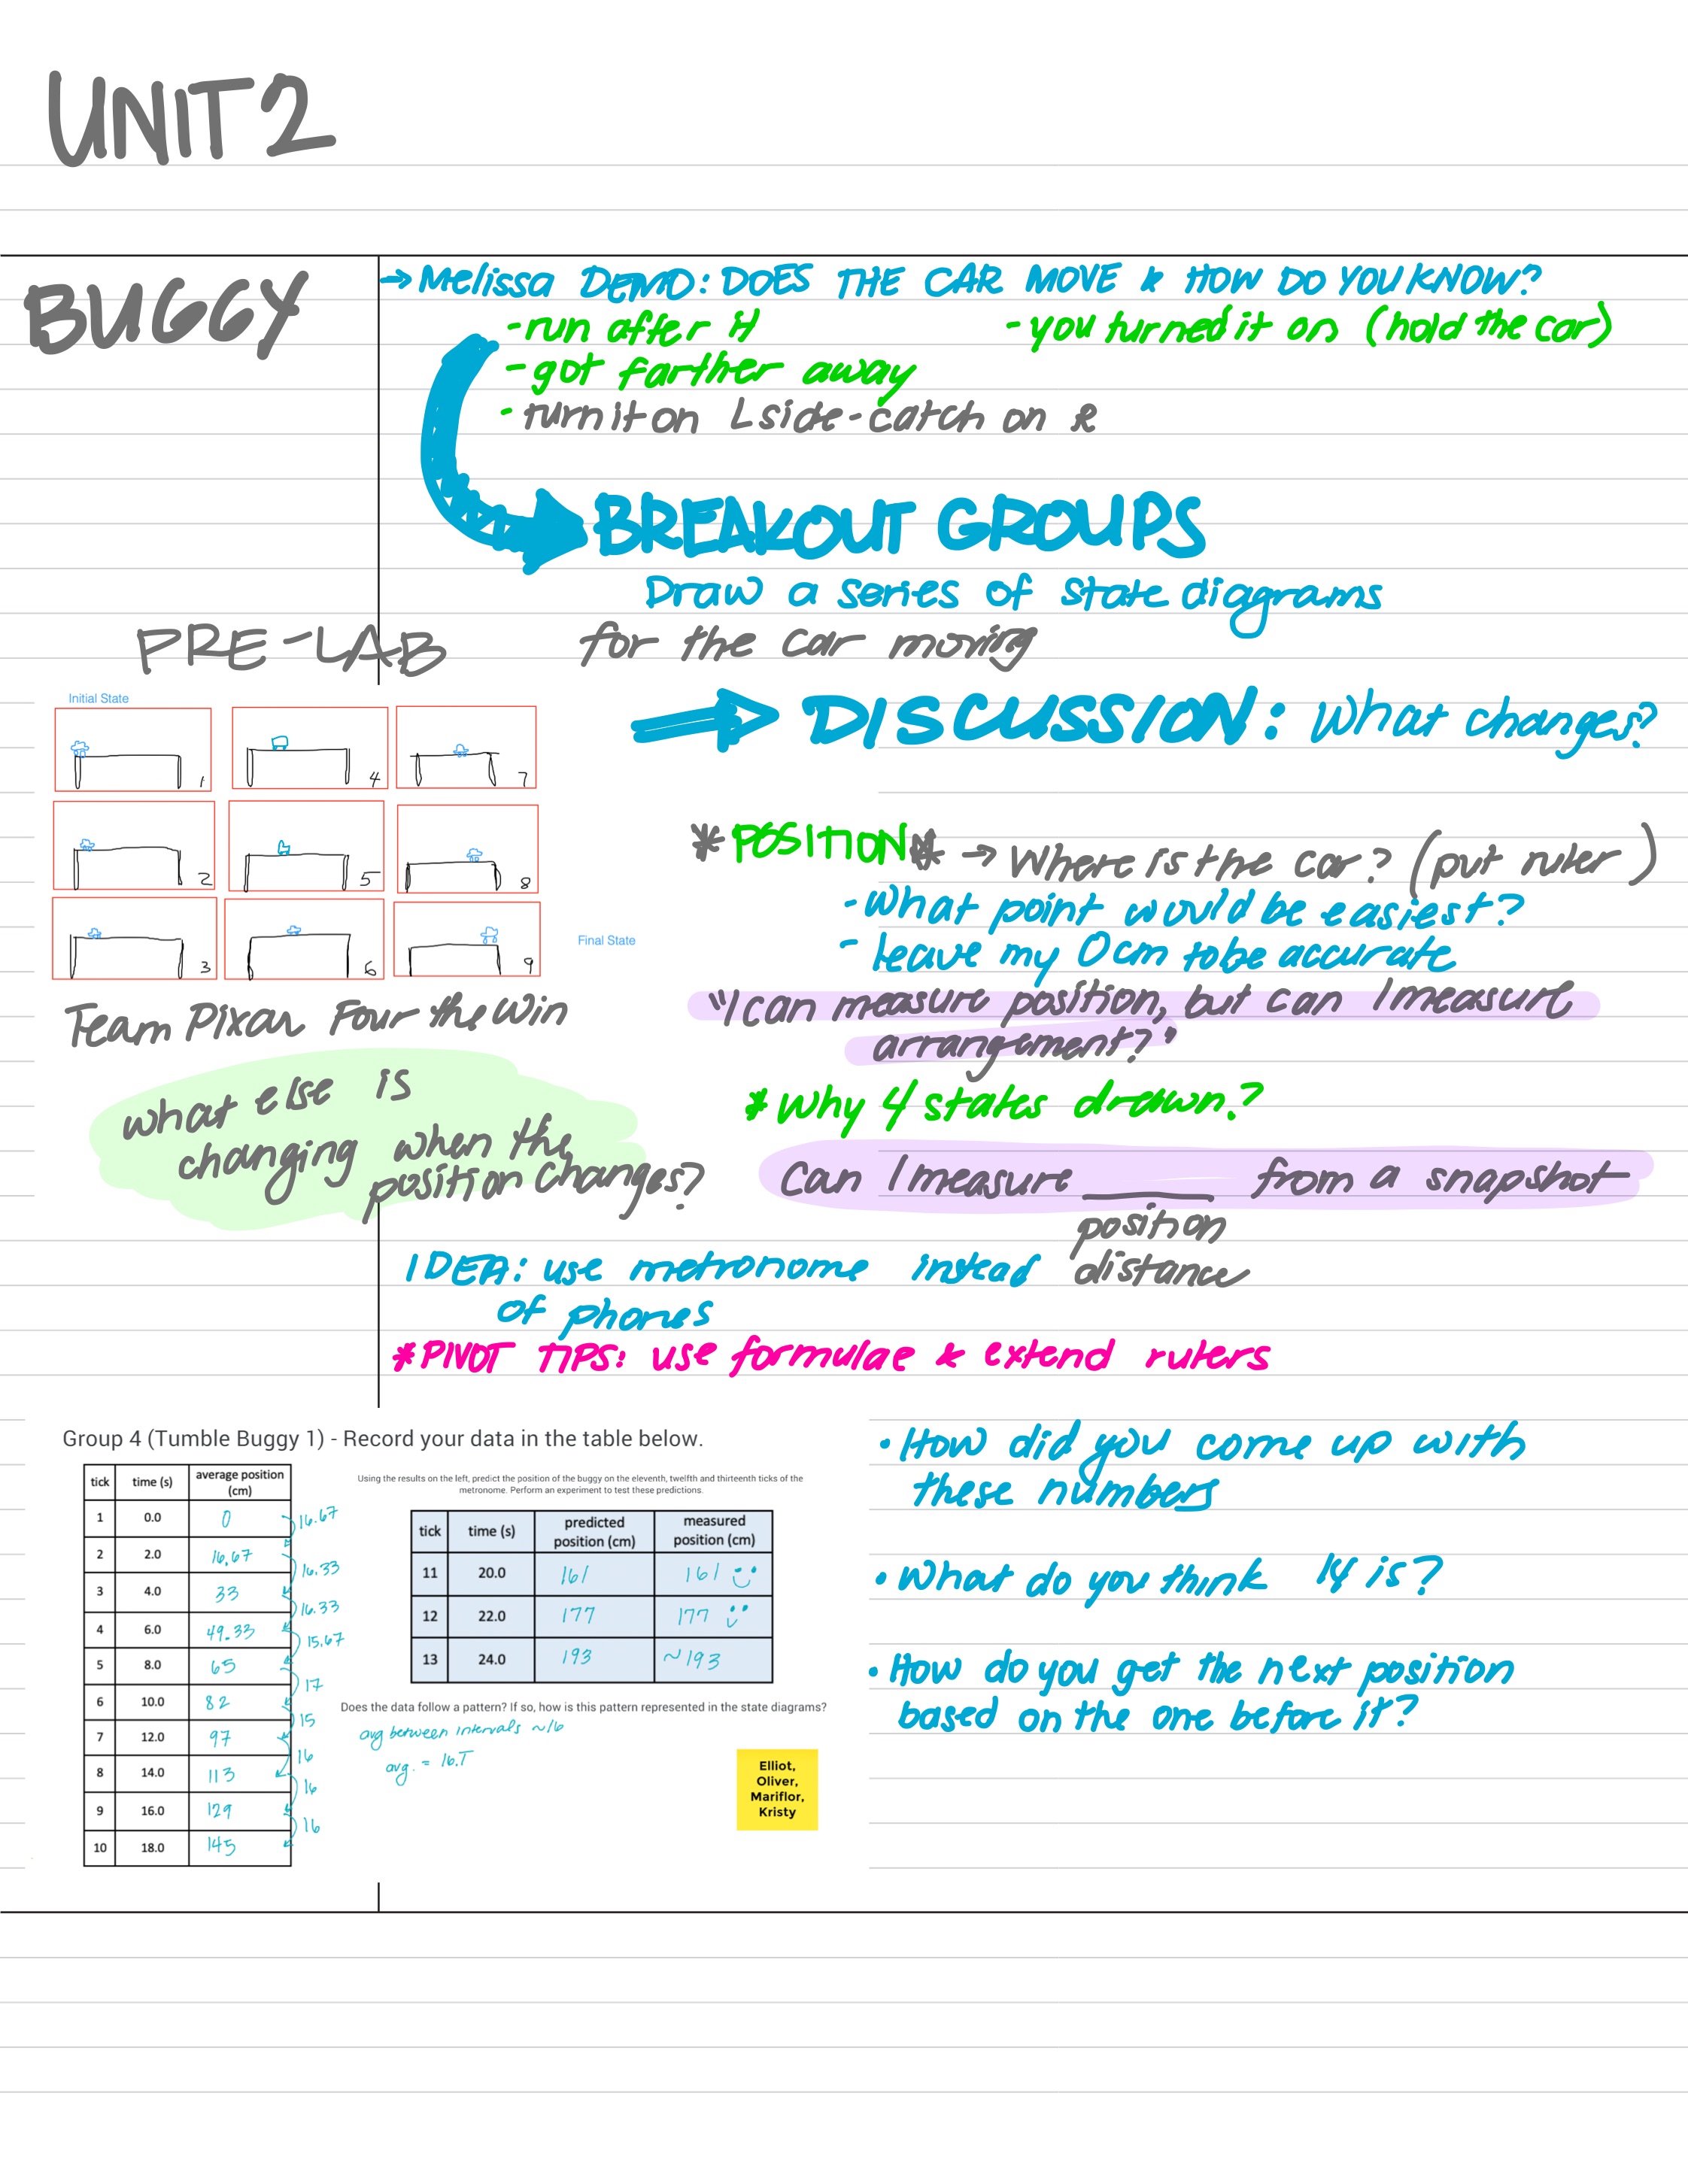 UNIT 2
BUGGY
→ Melissa DEMO: DOES THE CAR MOVE & HOW DO YOU KNOW?
- run after it
- you turned it on (hold the car)
- got farther away
- turn it on L side - catch on R
BREAKOUT GROUPS
Draw a series of state diagrams
for the car moving
PRE-LAB
Initial State
1
4
7
2
5
8
3
6
9
Final State
Team Pixar Four the Win
what else is
changing when the
position changes?
⇒ DISCUSSION: What changes?
* POSITION * → Where is the car? (put ruler)
- What point would be easiest?
- leave my 0cm to be accurate
"I can measure position, but can I measure
arrangement?"
* Why 4 states drawn?
Can I measure ____ from a snapshot
position
distance
IDEA: use metronome instead
of phones
*PIVOT TIPS: use formulae & extend rulers
Group 4 (Tumble Buggy 1) - Record your data in the table below.
tick time (s) average position (cm)
1 0.0 0
16.67
2 2.0 16.67
16.33
3 4.0 33
16.33
4 6.0 49.33
15.67
5 8.0 65
17
6 10.0 82
15
7 12.0 97
16
8 14.0 113
16
9 16.0 129
16
10 18.0 145
Using the results on the left, predict the position of the buggy on the eleventh, twelfth and thirteenth ticks of the
metronome. Perform an experiment to test these predictions.
tick time (s) predicted position (cm) measured position (cm)
11 20.0 161 161
12 22.0 177 177
13 24.0 193 ~193
Does the data follow a pattern? If so, how is this pattern represented in the state diagrams?
avg between intervals ~16
avg. = 16.T
Elliot,
Oliver,
Mariflor,
Kristy
• How did you come up with
these numbers
• What do you think 14 is?
• How do you get the next position
based on the one before it?